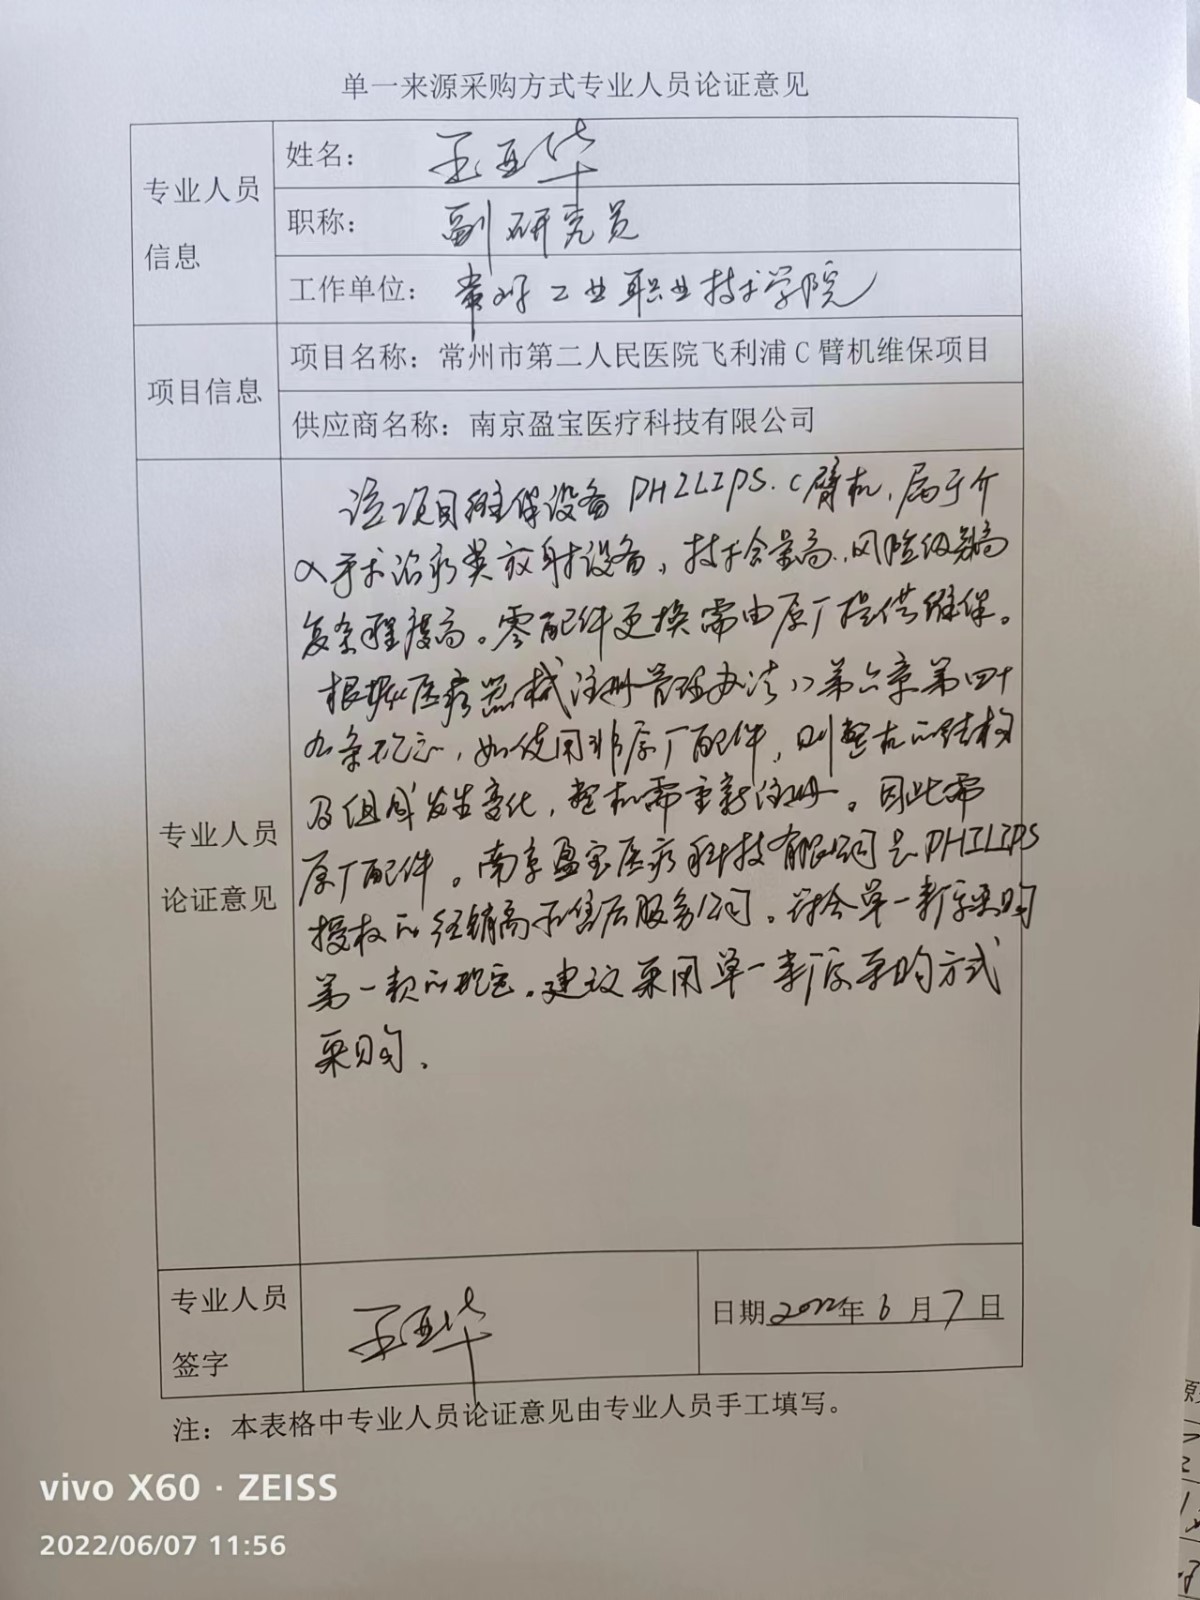 单一来源采购方式专业人员论证意见
专业人员
信息
姓名：
王亚华
职称：
副研究员
工作单位：
常州工业职业技术学院
项目信息
项目名称：常州市第二人民医院飞利浦C臂机维保项目
供应商名称：南京盈宝医疗科技有限公司
专业人员
论证意见
该项目维保设备PHILIPS.C臂机，属于介
入手术治疗类放射设备，技术含量高，风险级别高
复杂程度高。零配件更换需由原厂提供维保。
根据《医疗器械注册管理办法》第六章第四十
九条规定，如使用非原厂配件，则整机的结构
及组成发生变化，整机需重新注册。因此需
原厂配件。南京盈宝医疗科技有限公司是PHILIPS
授权的经销商和售后服务公司。符合单一来源采购
第一款的规定。建议采用单一来源采购方式
采购。
专业人员
签字
王亚华
日期2022年6月7日
注：本表格中专业人员论证意见由专业人员手工填写。
vivo X60 · ZEISS
2022/06/07 11:56